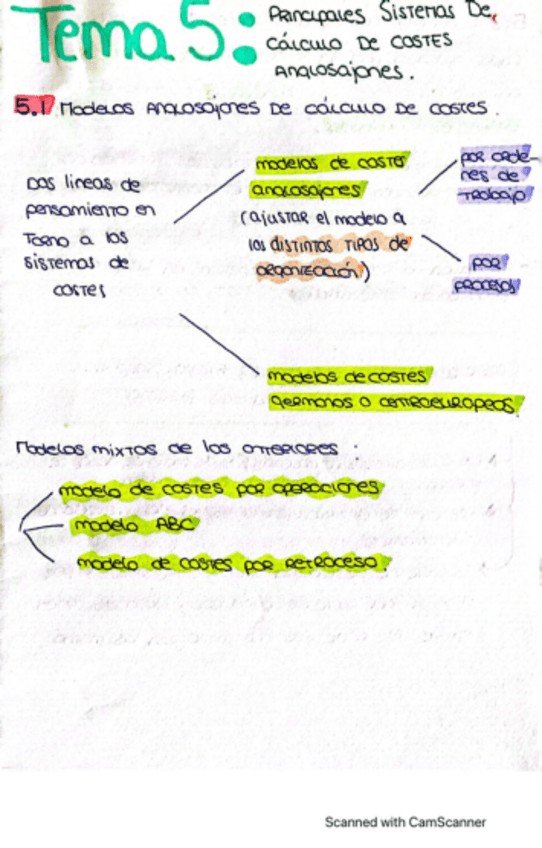 Tema 5:
Principales Sistemas De
cálculo De costes
Anglosajones.
5.1 Modelos Anglosajones De cálculo De costes.
Dos lineas de
pensamiento en
Torno a los
sistemas de
costes
modelos de costes
anglosajones
(ajustar el modelo a
los distintos tipos de
organización)
por orde-
nes de
Trabajo
por
procesos
modelos de costes
germanos o centroeuropeos
Modelos mixtos de los anteriores.
modelo de costes por operaciones
modelo ABC
modelo de costes por retroceso.
Scanned with CamScanner